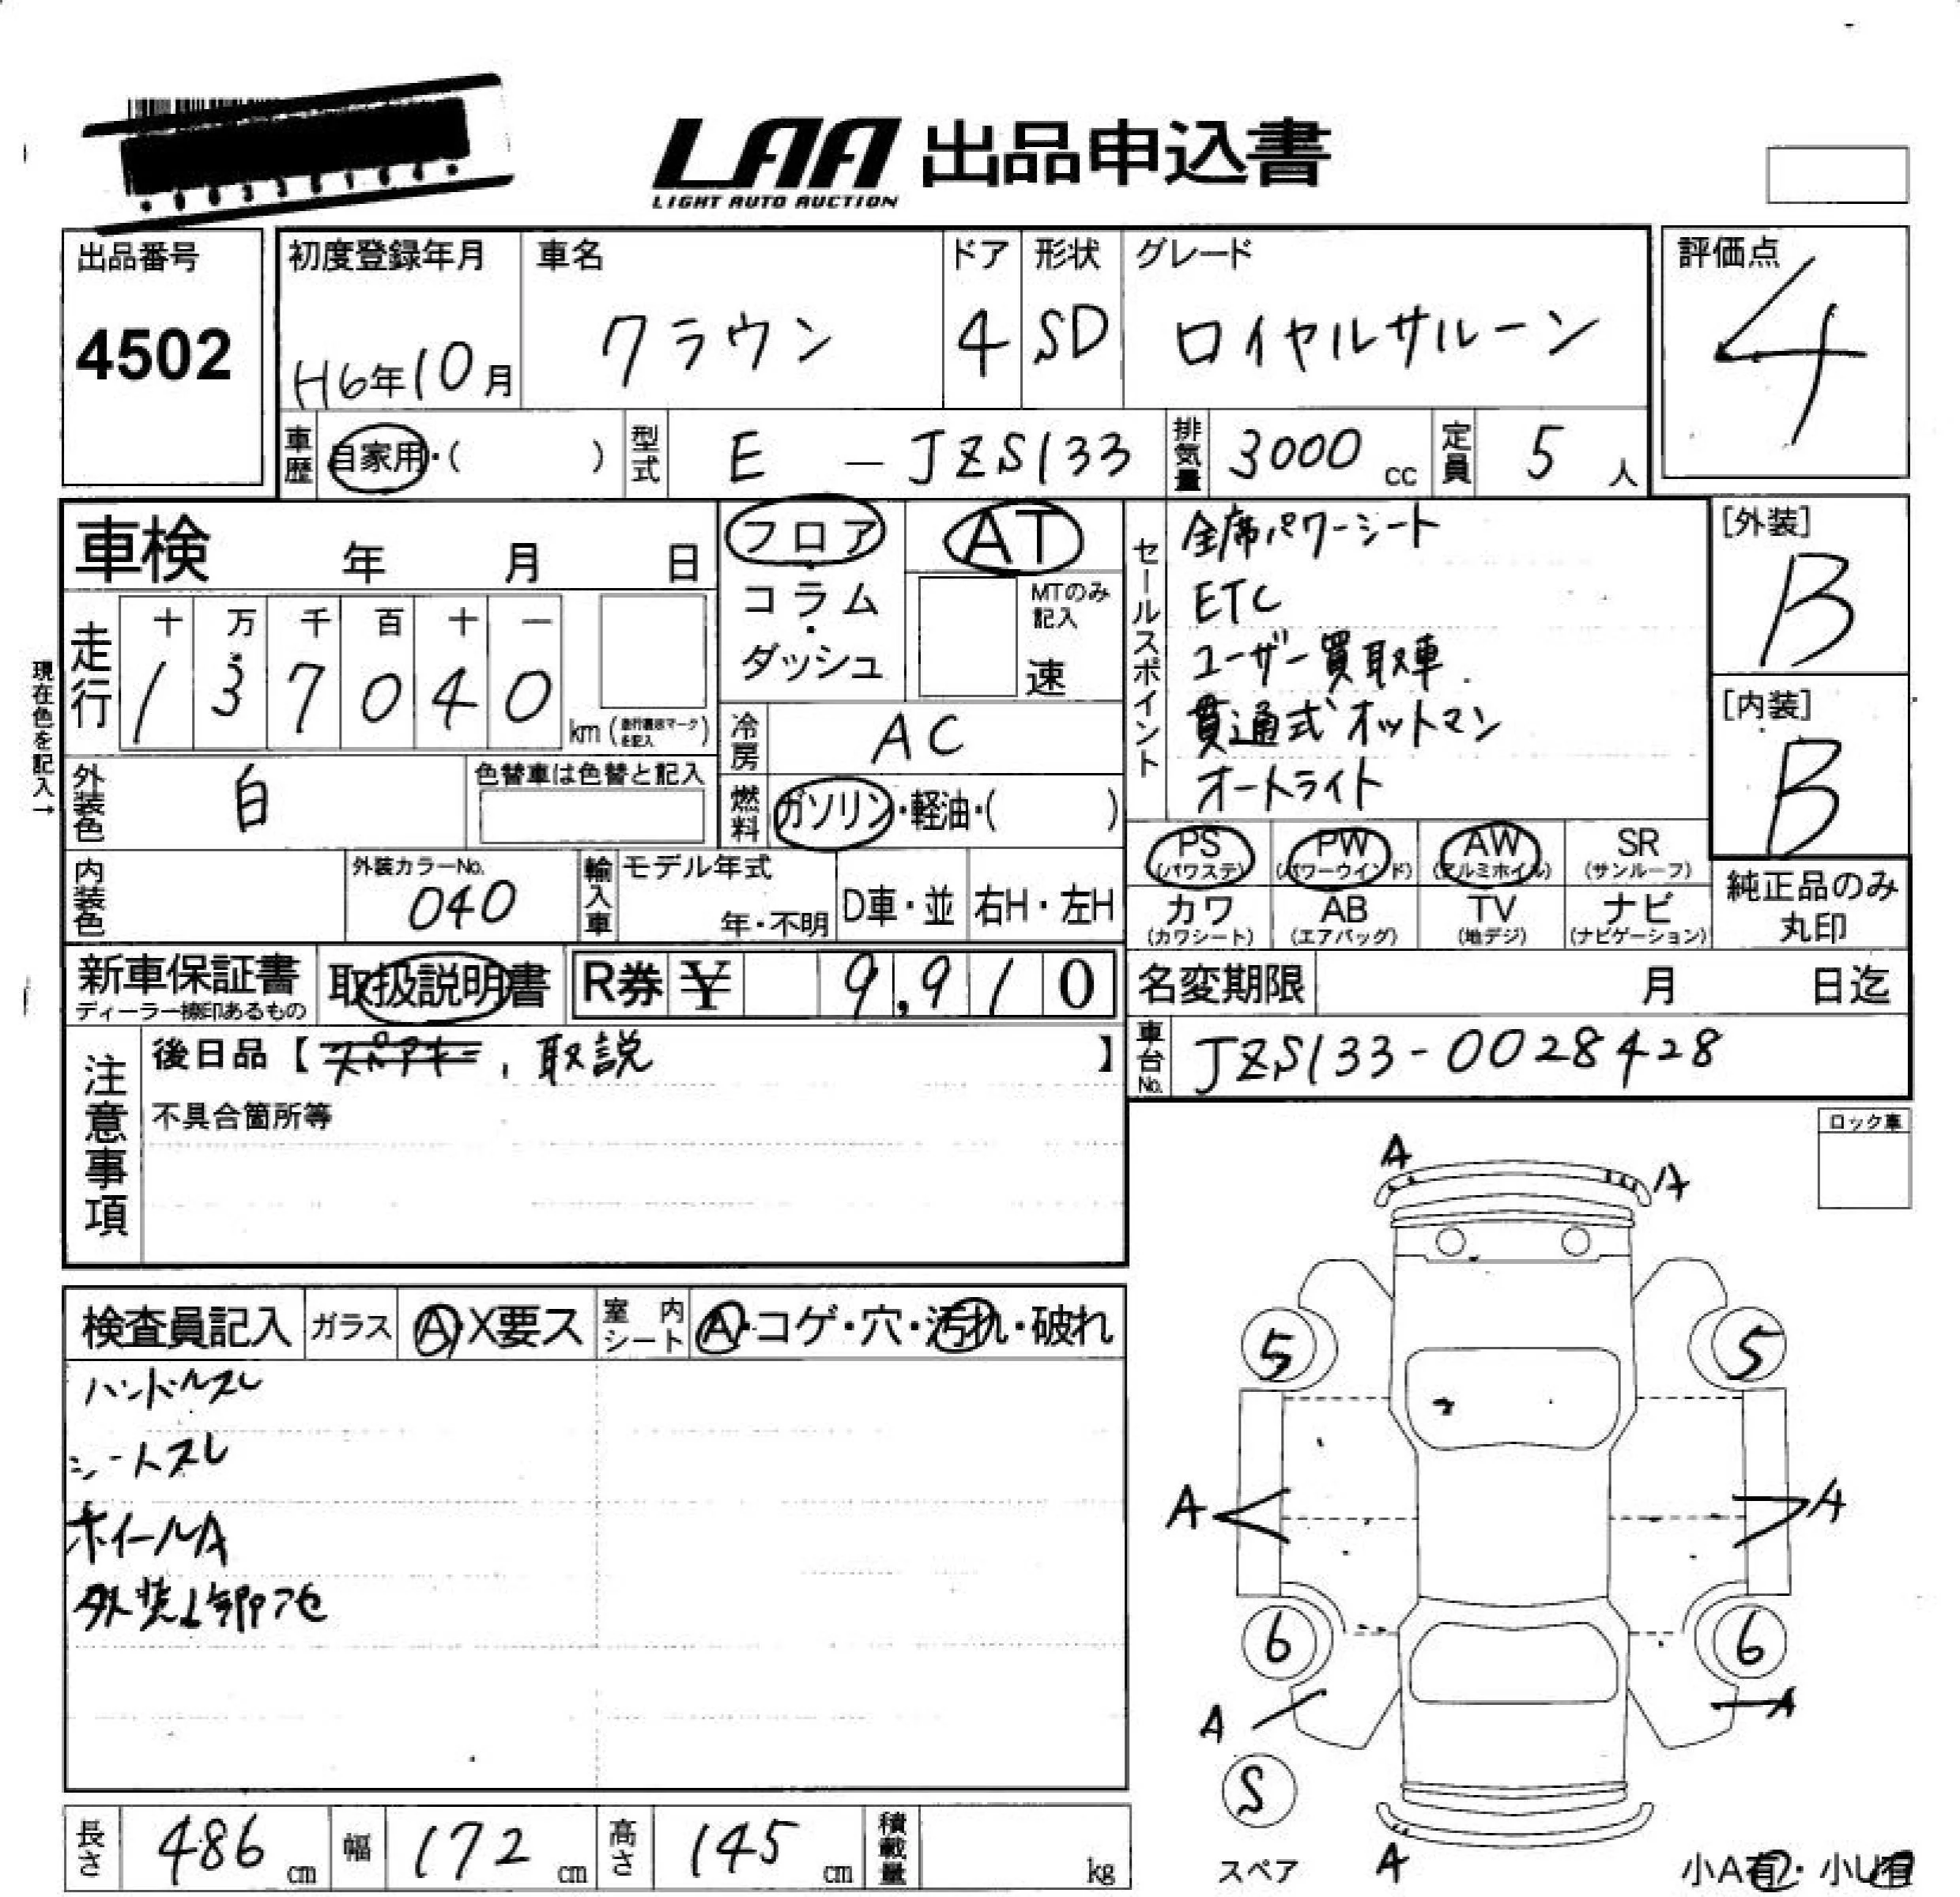 LAA 出品申込書
LIGHT AUTO AUCTION
出品番号
4502
初度登録年月
H6年10月
車名
クラウン
ドア
4
形状
SD
グレード
ロイヤルサルーン
評価点
4
車歴
自家用・( )
型式
E - JZS133
排気量
3000 cc
定員
5 人
車検 年 月 日
フロア・コラム・ダッシュ
AT
MTのみ記入
速
セールスポイント
全席パワーシート
ETC
ユーザー買取車
貫通式オットマン
オートライト
[外装]
B
[内装]
B
現在色を記入→
走行
十 万 千 百 十 一
1 3 7 0 4 0 km
冷房
AC
外装色
白
色替車は色替と記入
燃料
ガソリン・軽油・( )
内装色
外装カラーNo.
040
輸入車
モデル年式
年・不明
D車・並
右H・左H
PS (パワステ)
PW (パワーウインド)
AW (アルミホイル)
SR (サンルーフ)
カワ (カワシート)
AB (エアバッグ)
TV (地デジ)
ナビ (ナビゲーション)
純正品のみ
丸印
新車保証書
ディーラー捺印あるもの
取扱説明書
R券 ¥ 9,910
名変期限 月 日迄
注意事項
後日品【スペアキー, 取説】
不具合箇所等
車台No.
JZS133-0028428
ロック車
検査員記入
ガラス
A・X要ス
室内シート
A・コゲ・穴・汚れ・破れ
ハンドルスレ
シートスレ
ホイールA
A
A
5
5
A
A
6
6
A
A
S
スペア
A
小A有・小U有
長さ
486 cm
幅
172 cm
高さ
145 cm
積載量
kg